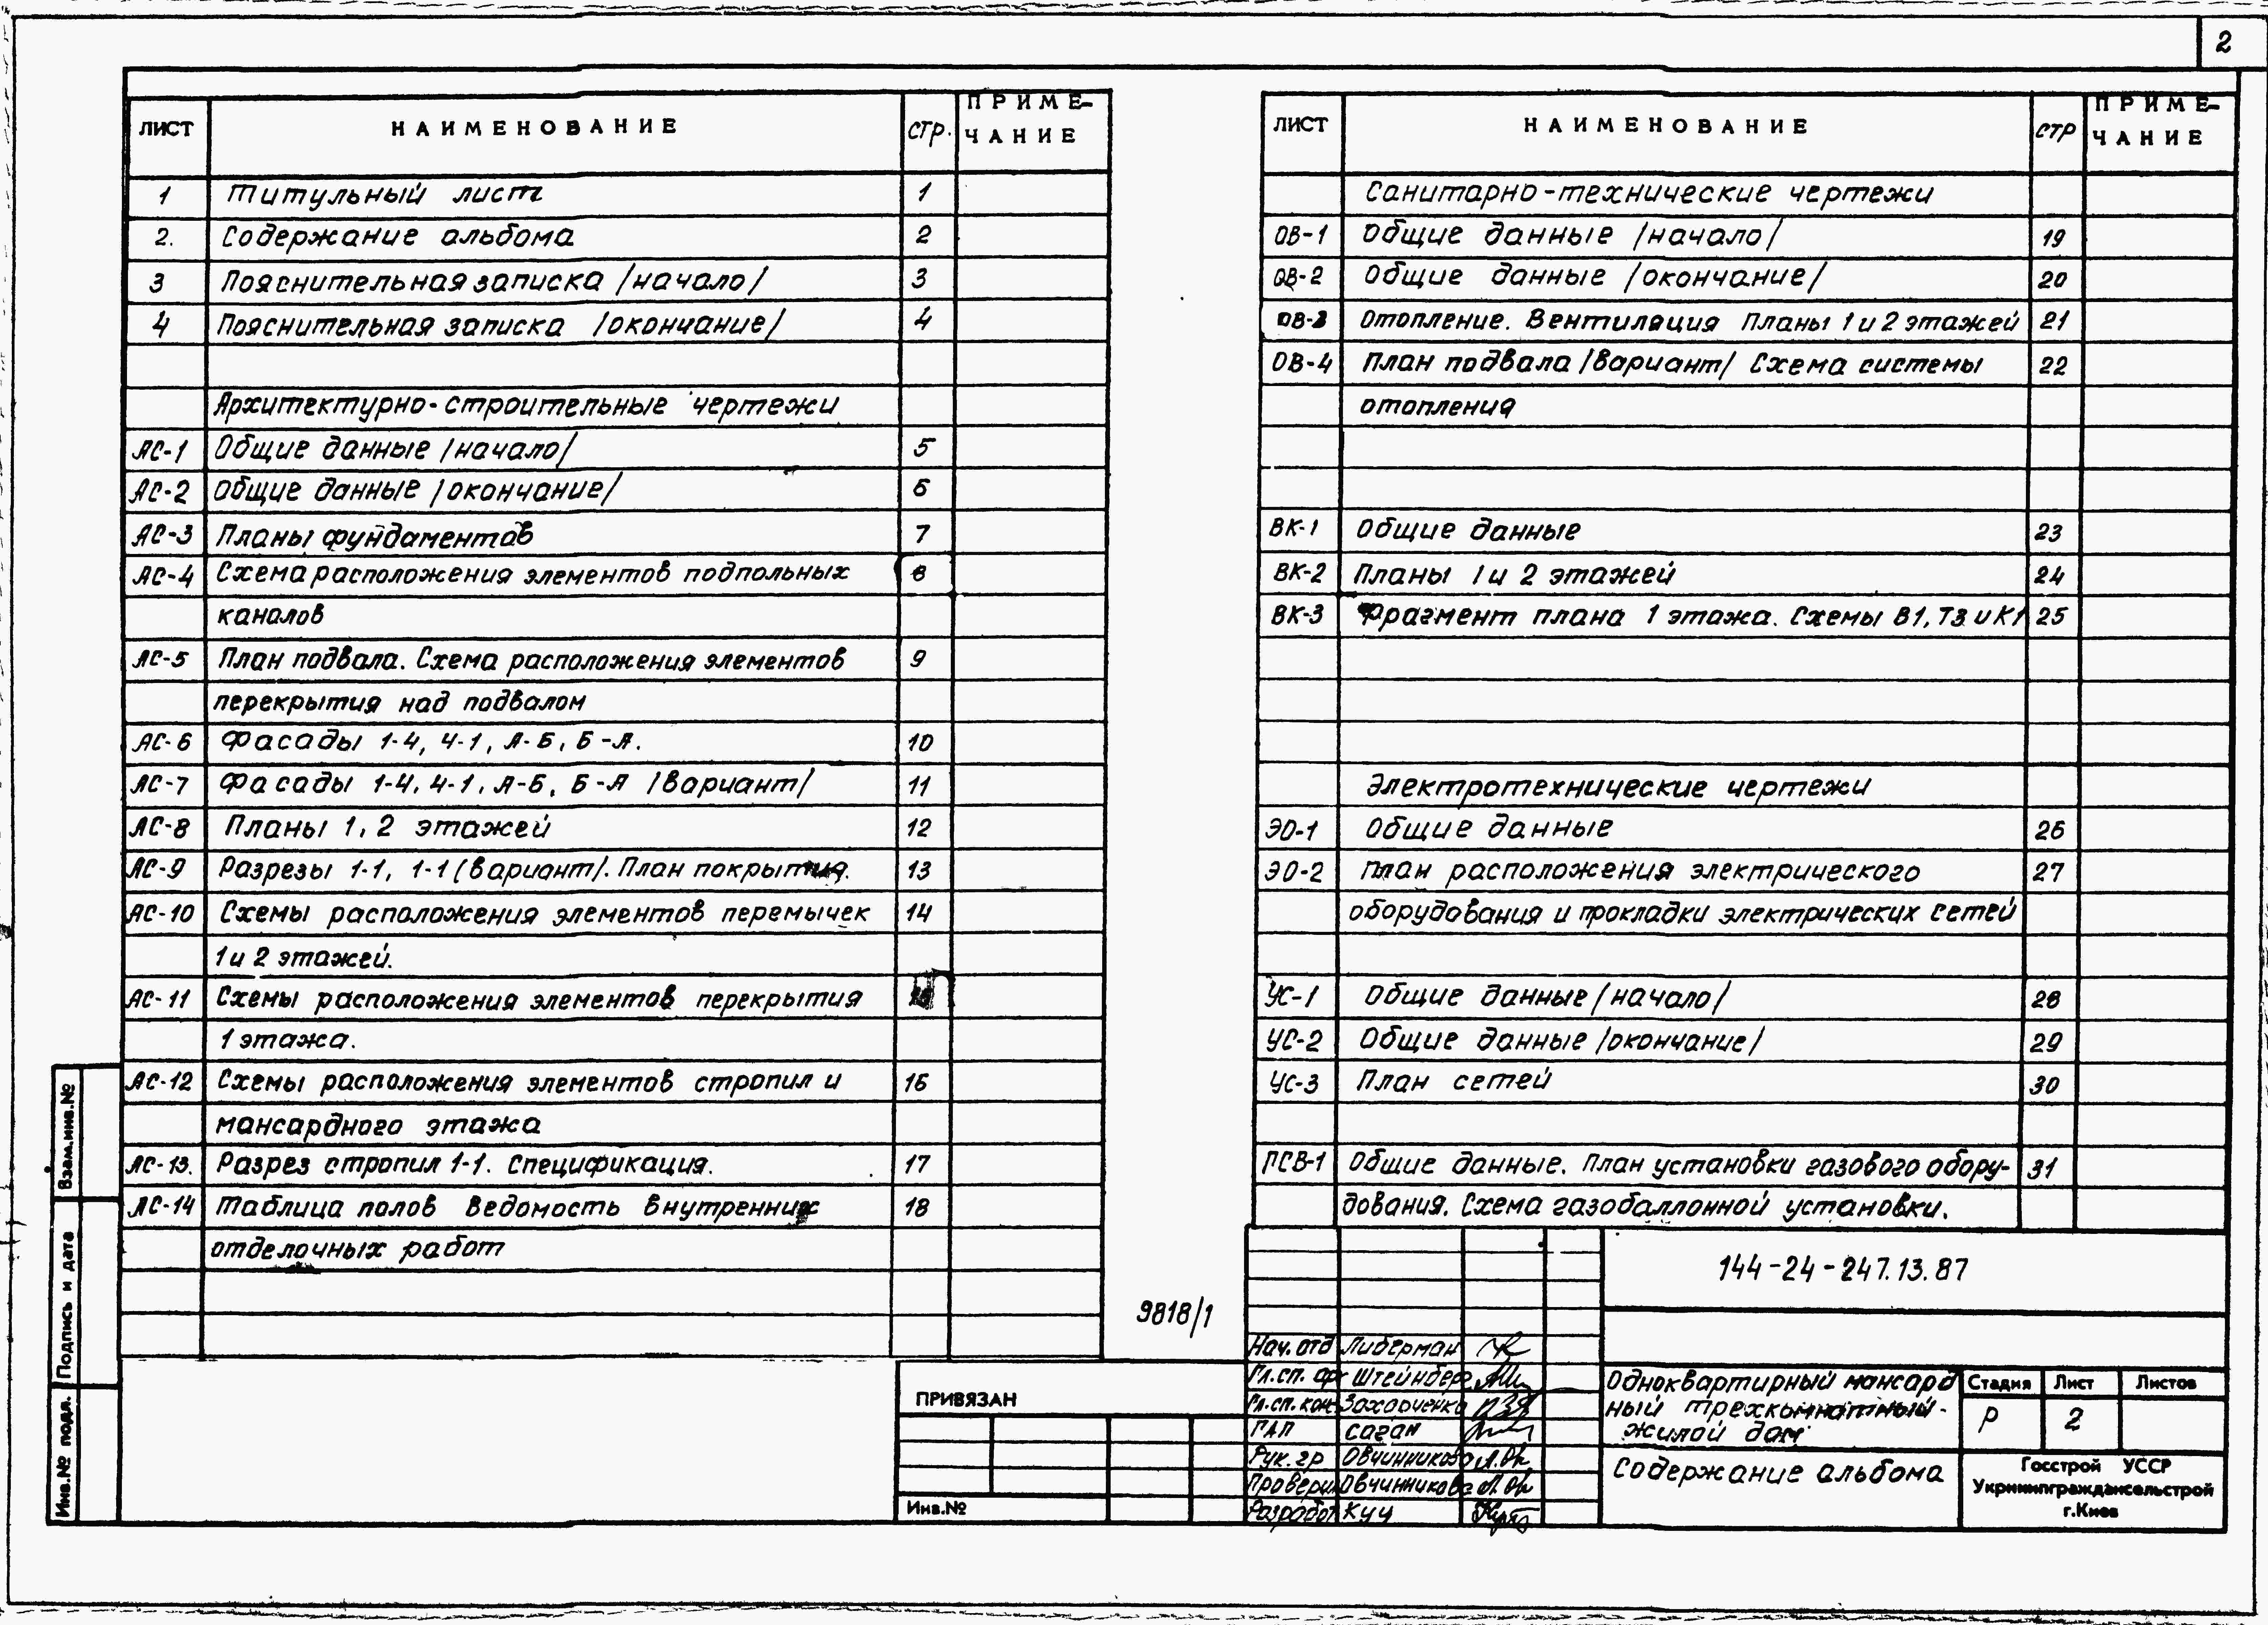 2
ЛИСТ НАИМЕНОВАНИЕ СТР. ПРИМЕ-
ЧАНИЕ
1 Титульный лист 1
2. Содержание альбома 2
3 Пояснительная записка /начало/ 3
4 Пояснительная записка /окончание/ 4
Архитектурно-строительные чертежи
АС-1 Общие данные /начало/ 5
АС-2 Общие данные /окончание/ 6
АС-3 Планы фундаментов 7
АС-4 Схема расположения элементов подпольных 8
каналов
АС-5 План подвала. Схема расположения элементов 9
перекрытия над подвалом
АС-6 Фасады 1-4, 4-1, А-Б, Б-А. 10
АС-7 Фасады 1-4, 4-1, А-Б, Б-А /вариант/ 11
АС-8 Планы 1, 2 этажей 12
АС-9 Разрезы 1-1, 1-1 (вариант/. План покрытия. 13
АС-10 Схемы расположения элементов перемычек 14
1 и 2 этажей.
АС-11 Схемы расположения элементов перекрытия
1 этажа.
АС-12 Схемы расположения элементов стропил и 16
мансардного этажа
АС-13. Разрез стропил 1-1. Спецификация. 17
АС-14 Таблица полов Ведомость внутренних 18
отделочных работ
ЛИСТ НАИМЕНОВАНИЕ СТР ПРИМЕ-
ЧАНИЕ
Санитарно-технические чертежи
ОВ-1 Общие данные /начало/ 19
ОВ-2 Общие данные /окончание/ 20
ОВ-3 Отопление. Вентиляция Планы 1 и 2 этажей 21
ОВ-4 План подвала /вариант/ Схема системы 22
отопления
ВК-1 Общие данные 23
ВК-2 Планы 1 и 2 этажей 24
ВК-3 Фрагмент плана 1 этажа. Схемы В1, Т3 и К1 25
Электротехнические чертежи
ЭО-1 Общие данные 26
ЭО-2 План расположения электрического 27
оборудования и прокладки электрических сетей
УС-1 Общие данные /начало/ 28
УС-2 Общие данные /окончание/ 29
УС-3 План сетей 30
ГСВ-1 Общие данные. План установки газового обору- 31
дования. Схема газобаллонной установки.
Взам.инв.№
Подпись и дата
Инв.№ подл.
9818/1
ПРИВЯЗАН
Инв.№
144-24-247.13.87
Нач. отд Либерман
Гл.сп. Штейнберг
Гл.сп. кон Захарченко
ГАП Саган
Рук. гр Овчинникова
Провери Овчинникова
Разработ Куц
Одноквартирный мансард
ный трехкомнатный
жилой дом
Содержание альбома
Стадия Лист Листов
Р 2
Госстрой УССР
Укрниипграждансельстрой
г.Киев